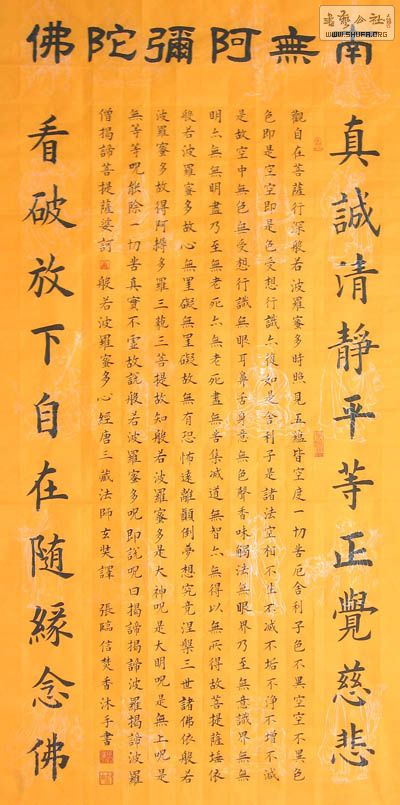 書藝公社
WWW.SHUFA.ORG
南無阿彌陀佛
真誠清靜平等正覺慈悲
觀自在菩薩行深般若波羅蜜多時照見五蘊皆空度一切苦厄舍利子色不異空空不異色
色即是空空即是色受想行識亦復如是舍利子是諸法空相不生不滅不垢不淨不增不減
是故空中無色無受想行識無眼耳鼻舌身意無色聲香味觸法無眼界乃至無意識界無無
明亦無無明盡乃至無老死亦無老死盡無苦集滅道無智亦無得以無所得故菩提薩埵依
般若波羅蜜多故心無罣礙無罣礙故無有恐怖遠離顛倒夢想究竟涅槃三世諸佛依般若
波羅蜜多故得阿耨多羅三藐三菩提故知般若波羅蜜多是大神呪是大明呪是無上呪是
無等等呪能除一切苦真實不虛故說般若波羅蜜多呪即說呪曰揭諦揭諦波羅揭諦波羅
僧揭諦菩提薩婆訶 般若波羅蜜多心經唐三藏法師玄奘譯 張臨信焚香沐手書
看破放下自在隨緣念佛